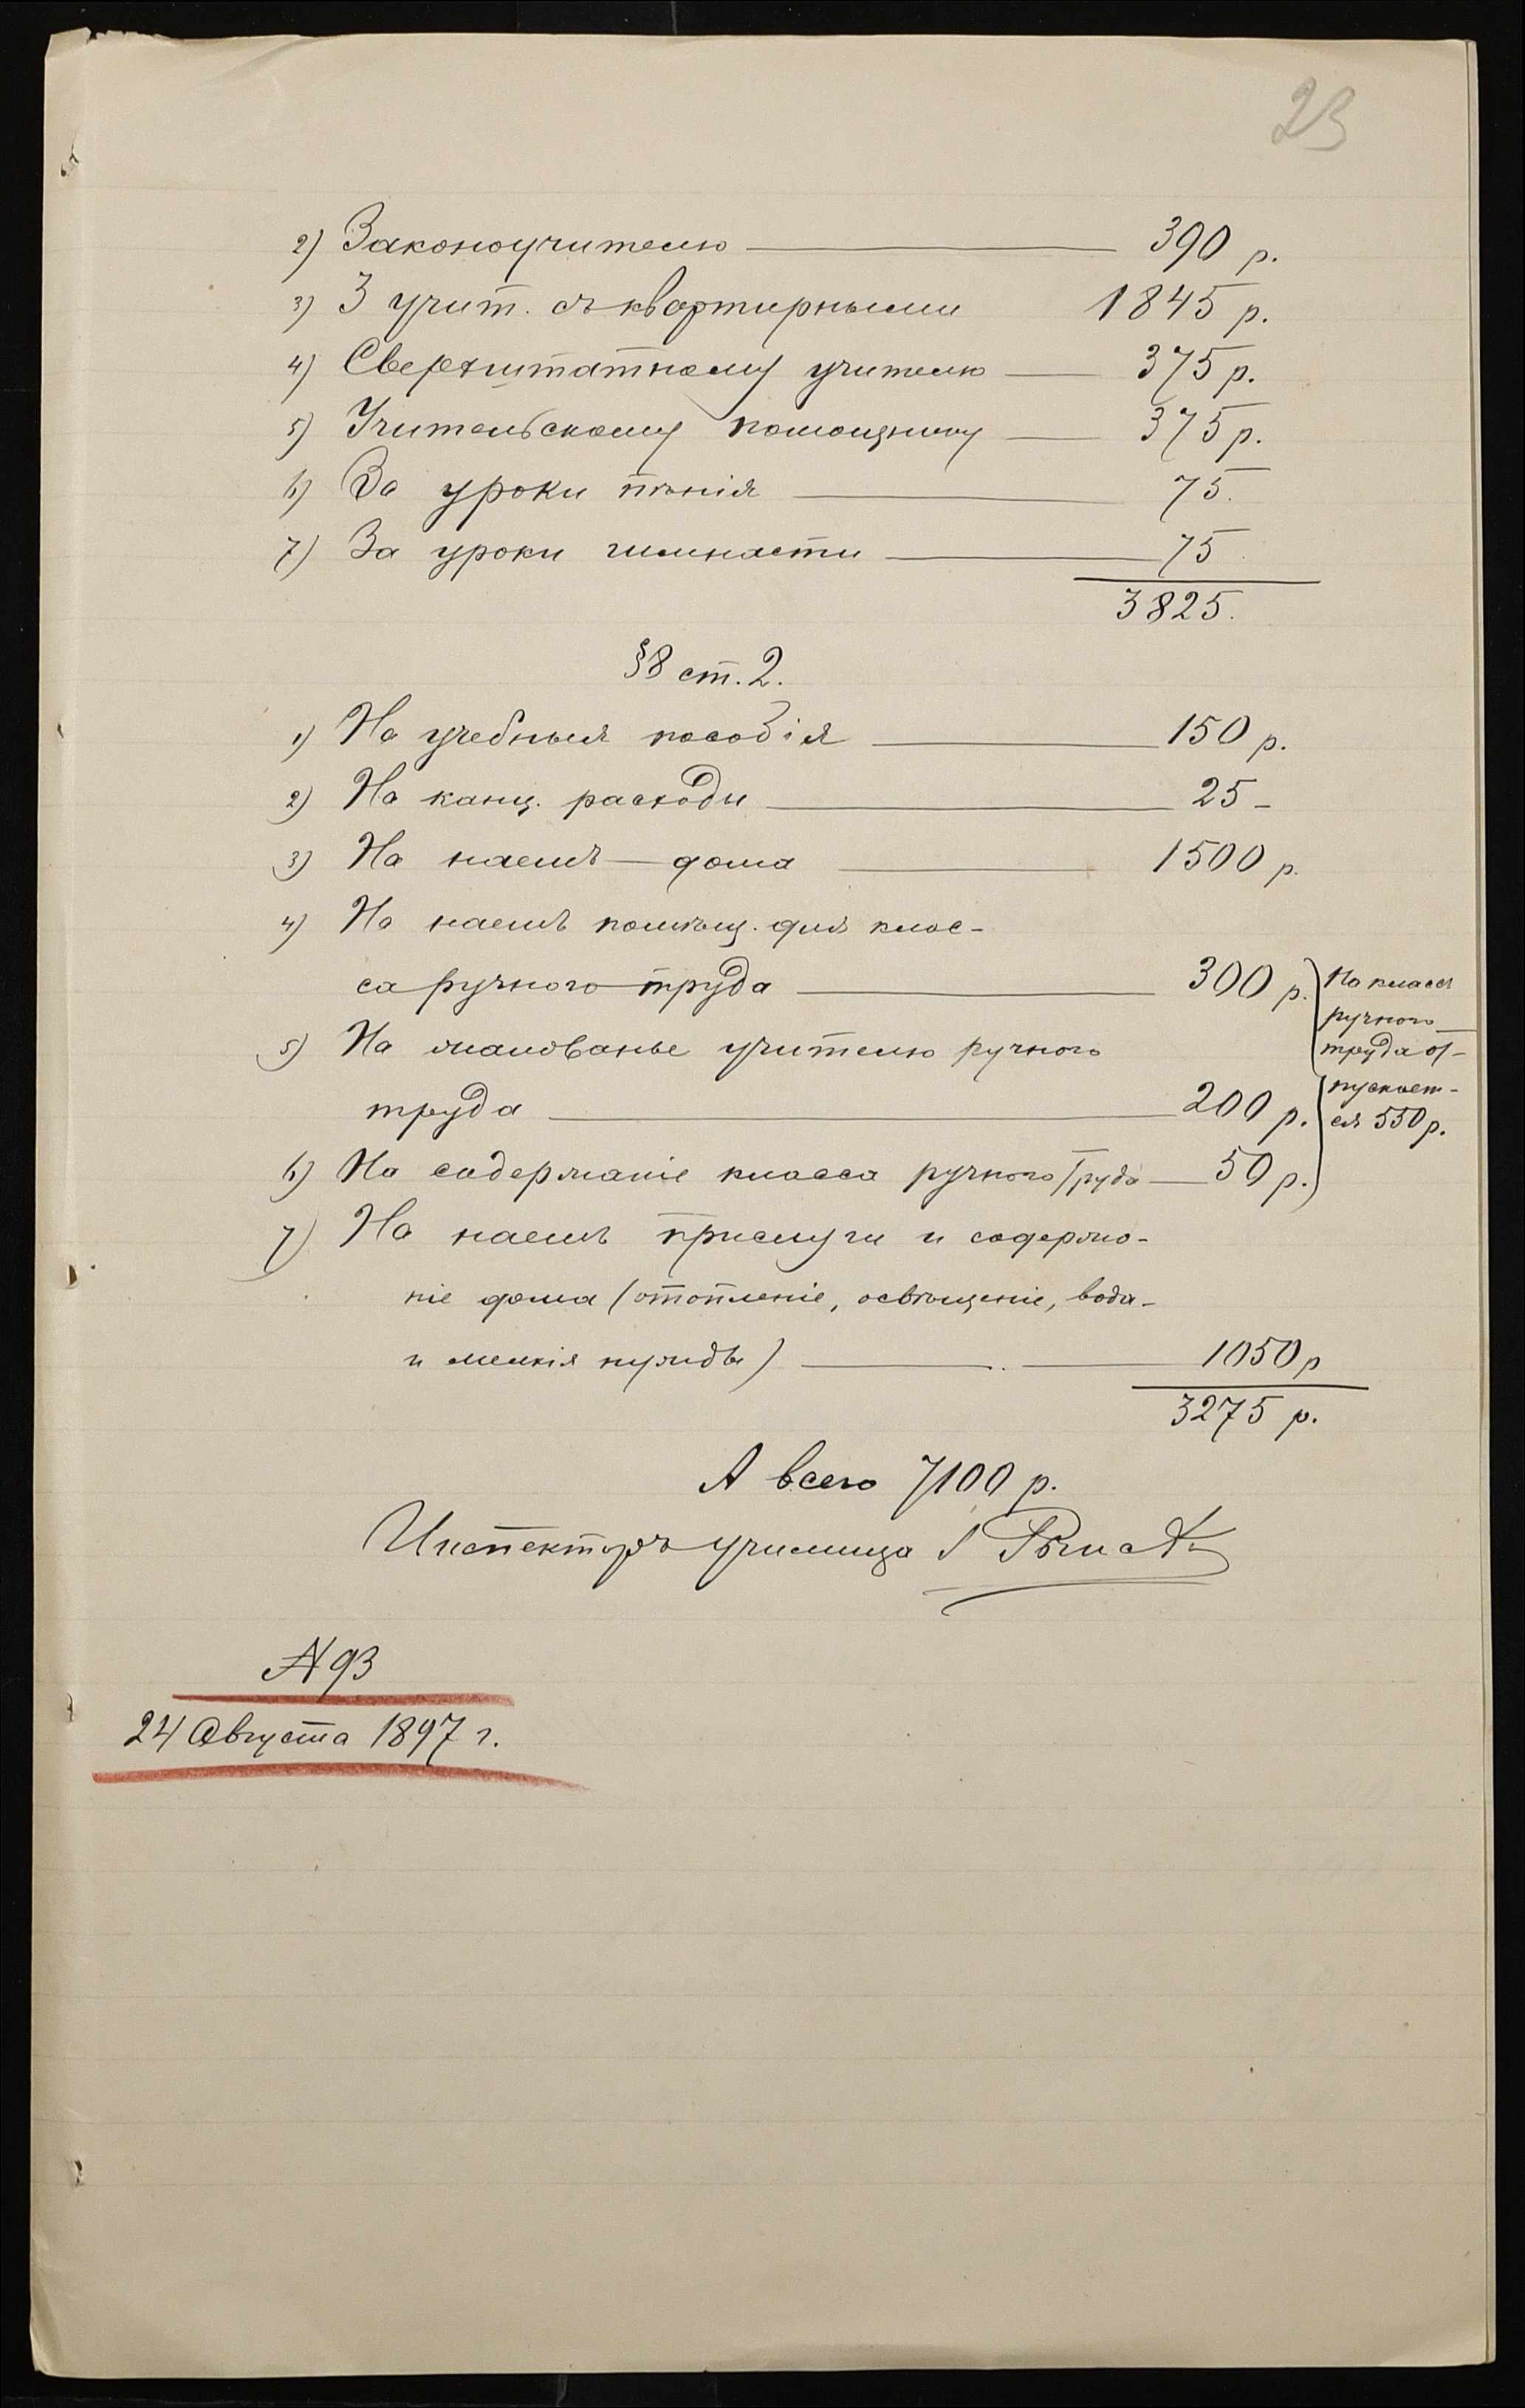 23
2) Законоучителю — 390 р.
3) 3 учит. съ квартирными 1845 р.
4) Сверхштатному учителю — 375 р.
5) Учительскому помощнику — 375 р.
6) За уроки пѣнія — 75.
7) За уроки гимнасти — 75.
3825.
§8 ст. 2.
1) На учебныя пособія — 150 р.
2) На канц. расходы — 25 –
3) На наемъ дома — 1500 р.
4) На наемъ помѣщ. для клас-
са ручного труда — 300 р.
5) На жалованье учителю ручного
труда — 200 р.
6) На содержаніе класса ручного труда — 50 р.
На классъ
ручного
труда от-
пускает-
ся 550 р.
7) На наемъ прислуги и содержа-
ніе дома (отопленіе, освѣщеніе, вода
и мелкія нужды) — 1050 р
3275 р.
А всего 7100 р.
Инспекторъ училища
№ 93
24 Августа 1897 г.